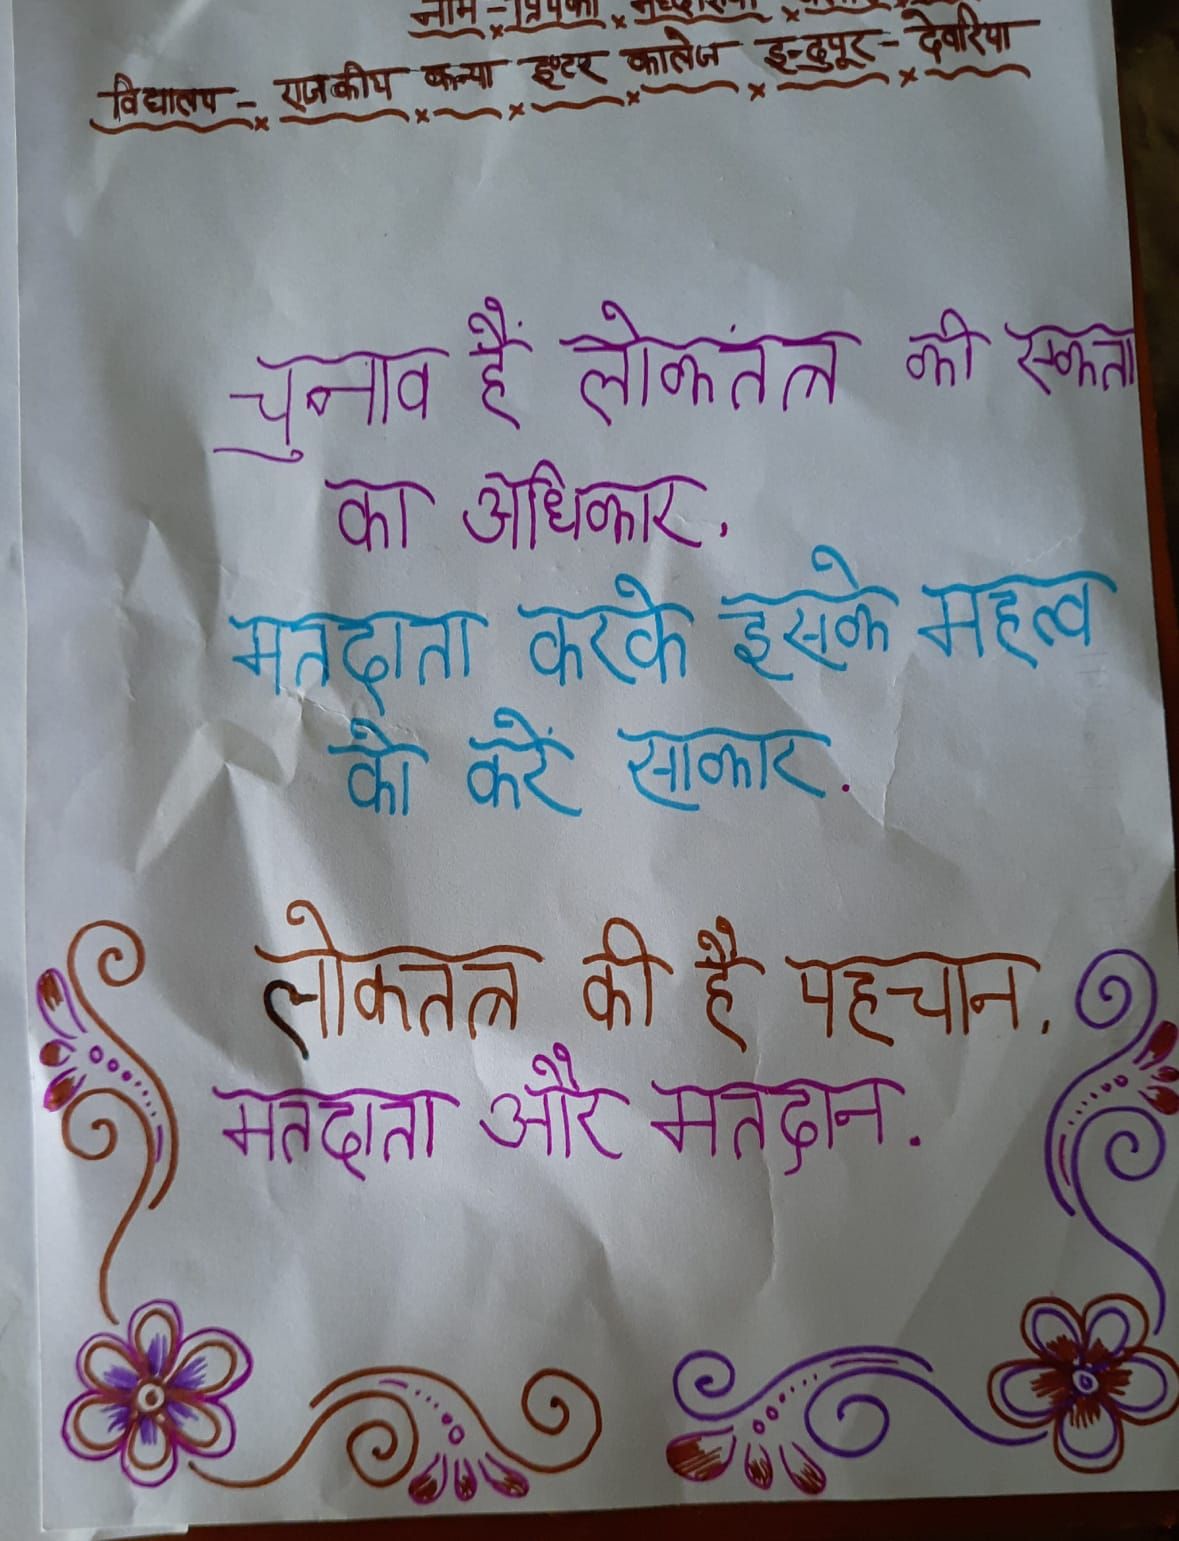 नाम -
विद्यालय - राजकीय कन्या इण्टर कालेज इन्दुपूर - देवरिया
चुनाव हैं लोकतंत्र की
का अधिकार,
मतदाता करके इसके महत्व
को करें साकार.
लोकतत्र की है पहचान,
मतदाता और मतदान.